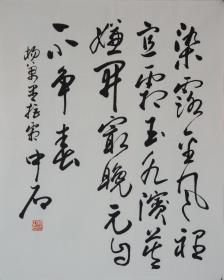 染露金風裡
宜霜玉水濱莫
嫌開最晚元自
不争春
楊萬里拒霜 中石